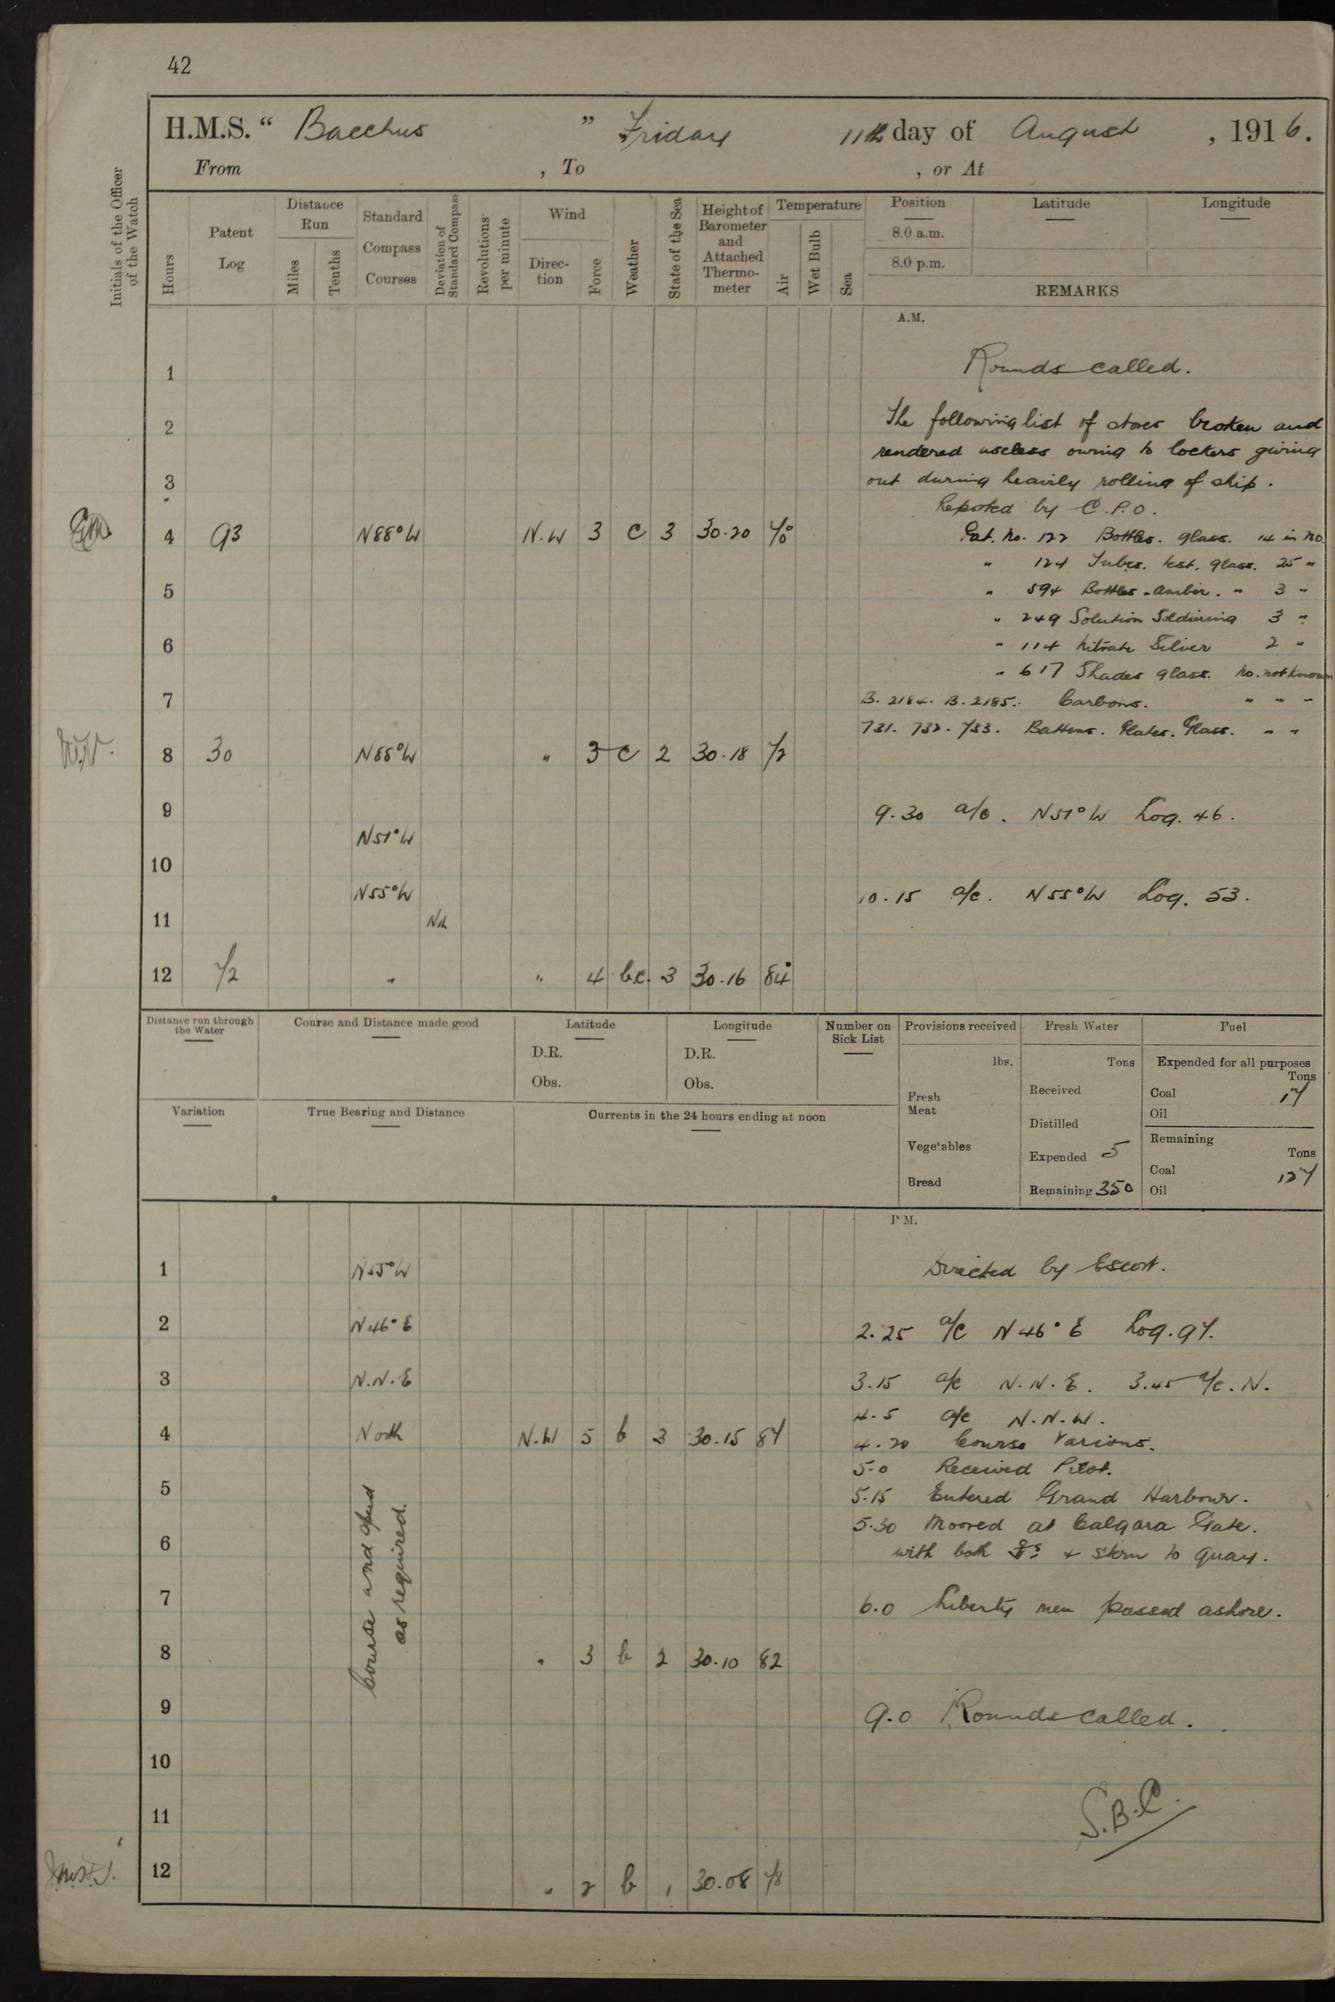 42
H.M.S. “ Bacchus ” Friday 11th day of August , 1916.
From , To , or At
Initials of the Officer of the Watch
Hours
Patent Log
Distance Run
Miles
Tenths
Standard Compass Courses
Deviation of Standard Compass
Revolutions per minute
Wind
Direction
Force
Weather
State of the Sea
Height of Barometer and Attached Thermometer
Temperature
Air
Wet Bulb
Sea
Position
8.0 a.m.
8.0 p.m.
Latitude
Longitude
REMARKS
A.M.
1 Rounds called.
2 The following list of stores broken and
rendered useless owing to lockers giving
3 out during heavily rolling of ship.
Reported by C.P.O.
4 93 N88°W N.W 3 c 3 30.20 70° Pat. No. 122 Bottles. glass. 14 in no.
" 124 Tubes. test. glass. 25 "
5 " 594 Bottles - amber. " 3 "
" 249 Solution Soldiering 3 "
6 " 114 Nitrate Silver 2 "
" 617 Shades glass. no. not known
7 B. 2184. B. 2185. Carbons. " " "
731. 732. 733. Battens. Plates. Glass. " "
W.V. 8 30 N88°W " 3 c 2 30.18 72
9 9.30 a/c. N51°W Log. 46.
N51°W
10
N55°W 10.15 a/c. N55°W Log. 53.
11
12 72 " " 4 bc. 3 30.16 84°
Distance run through the Water
Course and Distance made good
Latitude
D.R.
Obs.
Longitude
D.R.
Obs.
Number on Sick List
Provisions received
lbs.
Fresh Meat
Vegetables
Bread
Fresh Water
Tons
Received
Distilled
Expended 5
Remaining 350
Fuel
Expended for all purposes
Tons
Coal 17
Oil
Remaining
Tons
Coal 127
Oil
Variation
True Bearing and Distance
Currents in the 24 hours ending at noon
P.M.
1 N55°W Directed by Escort.
2 N46°E 2.25 a/c N46°E Log. 97.
3 N.N.E 3.15 a/c N.N.E. 3.45 a/c. N.
4.5 a/c N.N.W.
4 North N.W 5 b 3 30.15 87 4.20 Course Various.
5.0 Received Pilot.
5 5.15 Entered Grand Harbour.
5.30 Moored at Calgara Gate.
6 with both & stern to quay.
Course and speed
as required.
7 6.0 Liberty men passed ashore.
8 " 3 b 2 30.10 82
9 9.0 Rounds called.
10
11 S.B.C.
12 " 2 b 1 30.08 78